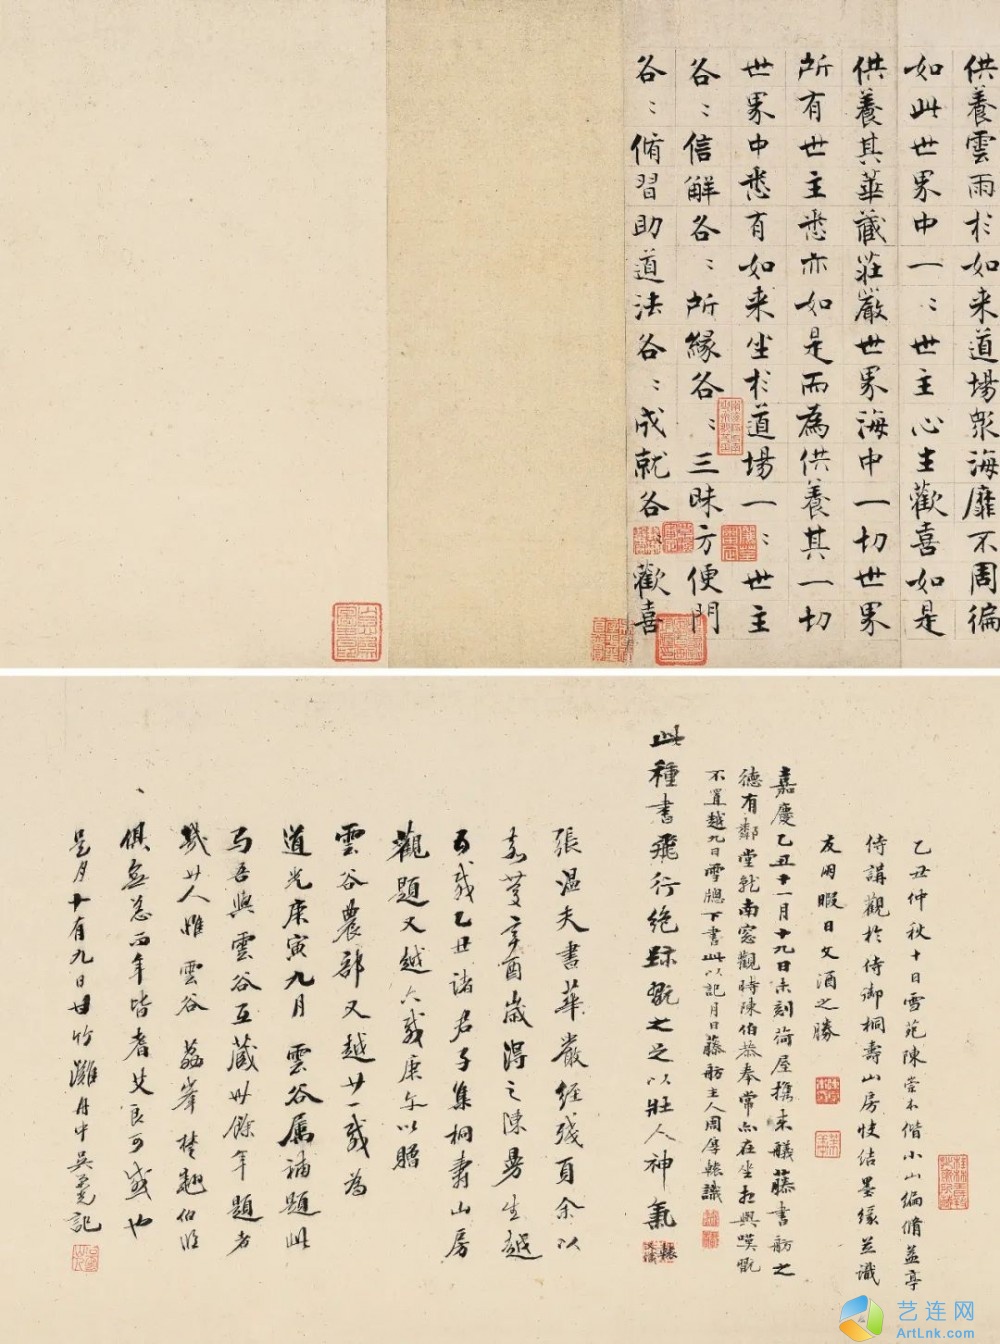 供養雲雨於如来道場衆海靡不周徧
如此世界中一〻世主心生歡喜如是
供養其華藏莊嚴世界海中一切世界
所有世主悉亦如是而為供養其一切
世界中悉有如来坐於道場一〻世主
各〻信解各〻所緣各〻三昧方便門
各〻脩習助道法各〻成就各〻歡喜
乙丑仲秋十日雪苑陳崇本偕小山編脩蓝亭
侍講觀於侍御桐壽山房快結墨緣並識
友朋暇日文酒之勝
嘉慶乙丑十一月十九日未刻荷屋攜来艤藤書舫之
德有鄰堂就南窓觀時陳伯恭奉常亦在坐相與嘆翫
不置越九日雪牕下書此以記月日藤舫主人周厚轅識
此種書飛行絕跡翫之之以壯人神氣
張溫夫書華嚴經殘頁余以
嘉慶辛酉歲得之陳昜生越
五載乙丑諸君子集桐壽山房
觀題又越六載庚午以贈
雲谷農部又越廿一載為
道光庚寅九月雲谷属補題此
與吾與雲谷互藏卅餘年題者
幾廿人惟雲谷荔峯楚翹伯臨
俱無恙而年皆耆艾良可感也
是月十有九日甘竹灘舟中吳榮光記
艺连网
ArtLnk.com